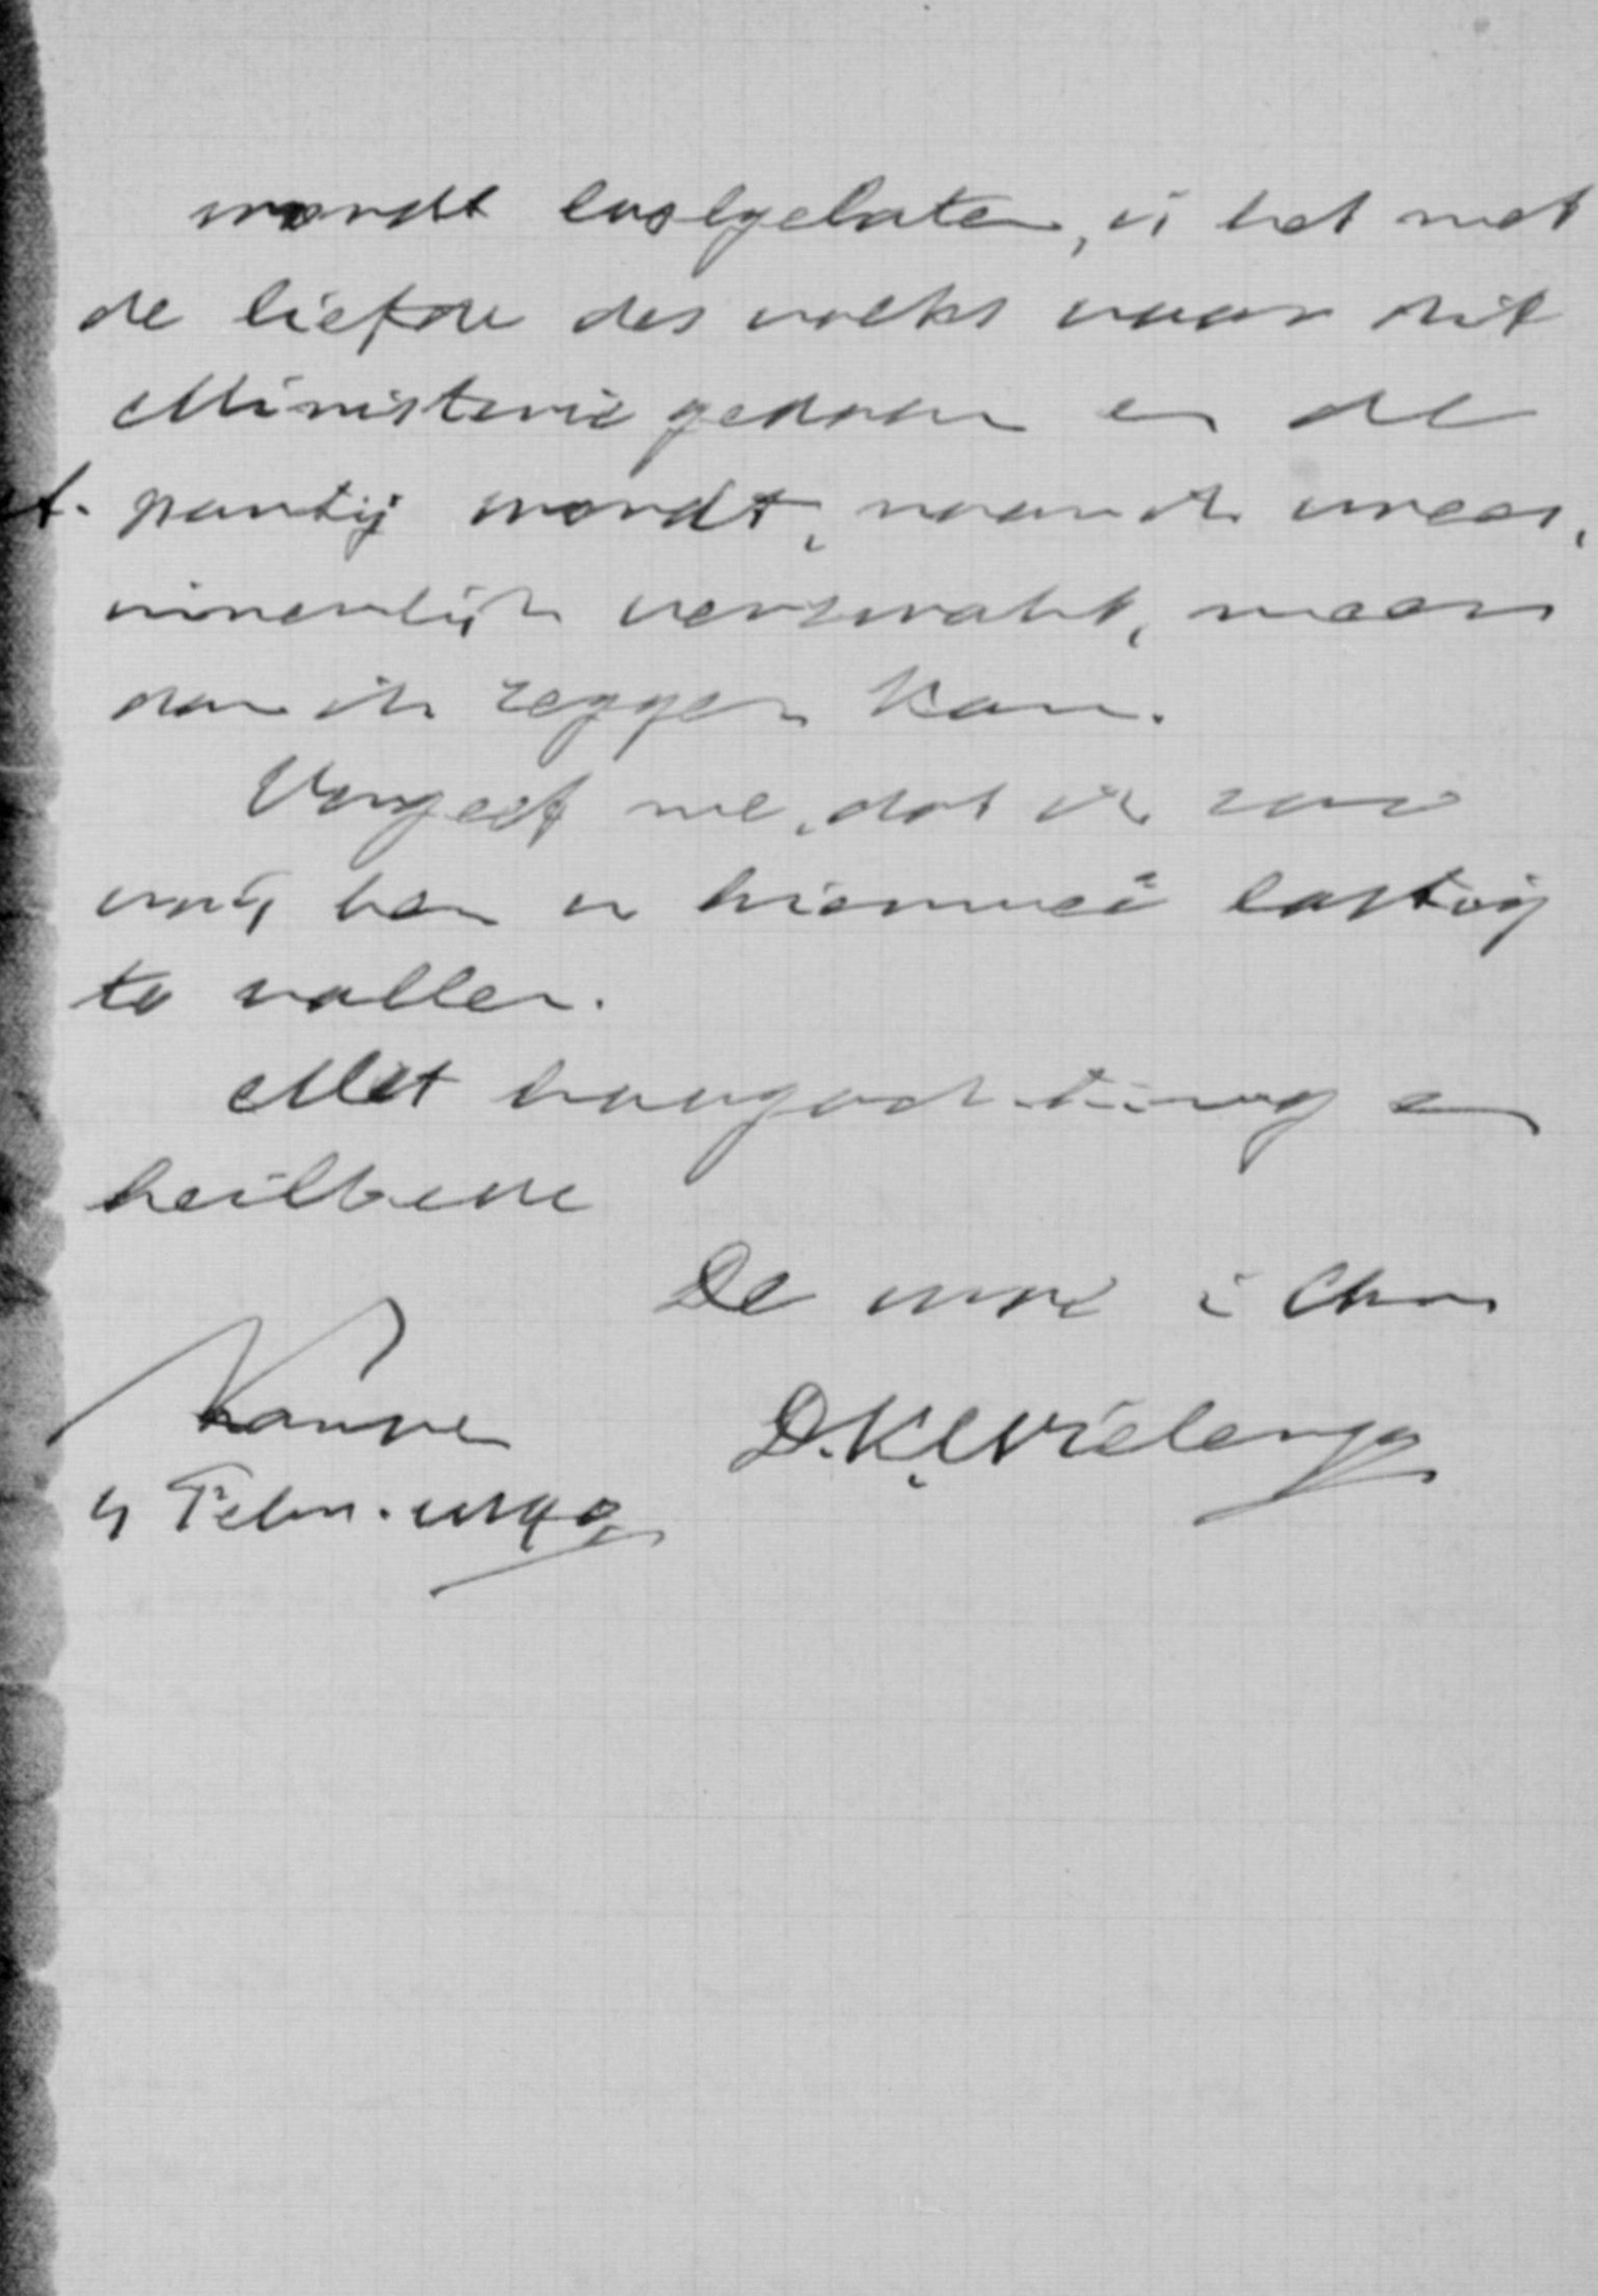 wordt losgelaten, is het met
de liefde des volks voor dit
Ministerie gedaan en de
partij wordt, naar ik vrees,
innerlijk verzwakt, meer
dan ik zeggen kan.
Vergeef me, dat ik zoo
vrij ben u hiermeê lastig
te vallen.
Met hoogachting en
heilbede
De uwe i Chr
Kampen D.K. Wielenga
4 Febr.